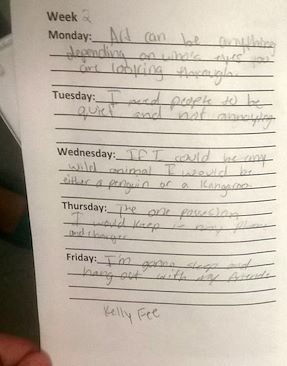 Week 2
Monday: Art can be anything
depending on who's eyes you
are looking through.
Tuesday: I need people to be
quiet and not annoying
Wednesday: If I could be any
wild animal I would be
either a penguin or a Kangaroo.
Thursday: The one possession
I would keep is my phone
and charger
Friday: I'm gonna sleep and
hang out with my friends
Kelly Fee